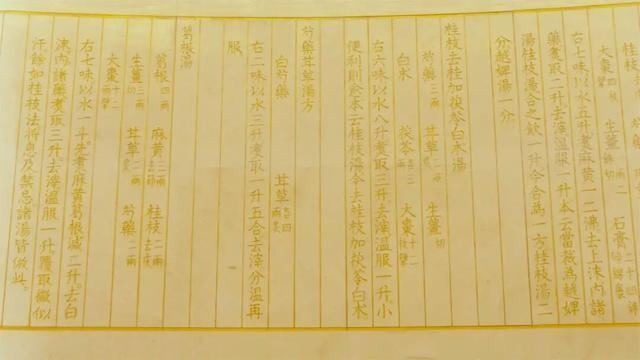 桂枝
大棗四枚擘 生薑 石膏二十四銖碎綿裹
右七味以水五升煮麻黃一二沸去上沫內諸
藥煮取二升去滓溫服一升本云當裁為越婢
湯桂枝湯合之飲一升今合為一方桂枝湯二
分越婢湯一分
桂枝去桂加茯苓白朮湯
芍藥三兩 甘草二兩炙 生薑切
白朮 茯苓各三兩 大棗十二枚擘
右六味以水八升煮取三升去滓溫服一升小
便利則愈本云桂枝湯今去桂枝加茯苓白朮
芍藥甘草湯方
白芍藥 甘草各四兩炙
右二味以水三升煮取一升五合去滓分溫再
服
葛根湯
葛根四兩 麻黃三兩去節 桂枝二兩去皮
生薑三兩切 甘草二兩炙 芍藥二兩
大棗十二枚擘
右七味以水一斗先煮麻黃葛根減二升去白
沫內諸藥煮取三升去滓溫服一升覆取微似
汗餘如桂枝法將息及禁忌諸湯皆倣此